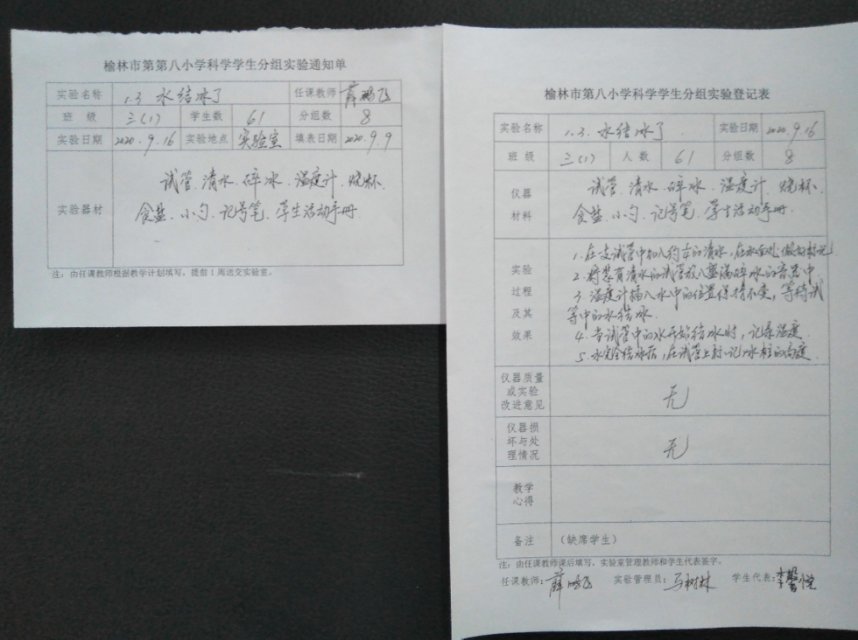 榆林市第八小学科学学生分组实验通知单
实验名称 1.3 水结冰了 任课教师 薛鹏飞
班 级 三(1) 学生数 61 分组数 8
实验日期 2020.9.16 实验地点 实验室 填表日期 2020.9.9
实验器材 试管.清水.碎冰.温度计.烧杯.
食盐.小勺.记号笔.学生活动手册.
注:由任课教师根据教学计划填写,提前1周送交实验室。
榆林市第八小学科学学生分组实验登记表
实验名称 1.3.水结冰了 实验日期 2020.9.16
班 级 三(1) 人 数 61 分组数 8
仪器材料 试管.清水.碎冰.温度计.烧杯.
食盐.小勺.记号笔.学生活动手册.
实验过程及其效果
1.在支试管中加入约 的清水,在水面处做好标记
2.将装有清水的试管放入盛满碎冰的 中
3.温度计插入水中的位置保持不变,等待试
管中的水结冰.
4.当试管中的水开始结冰时,记录温度.
5.水完全结冰后,在试管上 记冰柱的高度.
仪器质量或实验改进意见 无
仪器损坏与处理情况 无
教学心得
备注 (缺席学生)
注:由任课教师课后填写,实验室管理教师和学生代表签字。
任课教师:薛鹏飞 实验管理员:马树林 学生代表:李馨悦